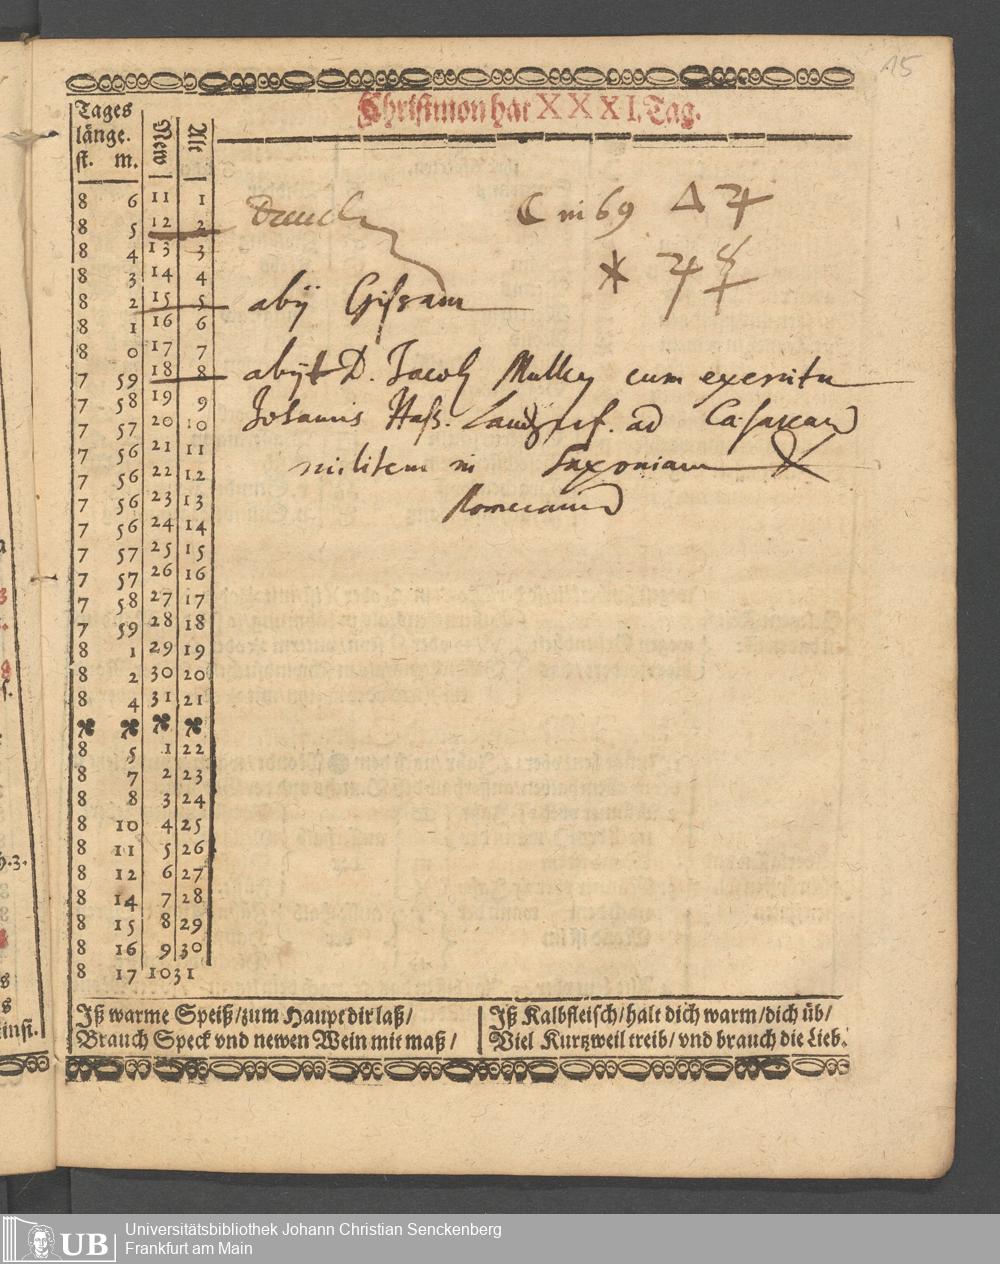 15
Christmon hat XXXI. Tag.
Tages
länge.
st. m. New Alt
8 6 11 1
8 5 12 2
8 4 13 3
8 3 14 4
8 2 15 5
8 1 16 6
8 0 17 7
7 59 18 8
7 58 19 9
7 57 20 10
7 56 21 11
7 56 22 12
7 56 23 13
7 56 24 14
7 57 25 15
7 57 26 16
7 58 27 17
7 59 28 18
8 1 29 19
8 2 30 20
8 4 31 21
8 5 1 22
8 7 2 23
8 8 3 24
8 10 4 25
8 11 5 26
8 12 6 27
8 14 7 28
8 15 8 29
8 16 9 30
8 17 10 31
☾ in 69 △ ♃
* ♃ ☿
abij Gissam
abijt D. Jacob cum exercitu
Johannis Haß. Landgraf. ad
militem in Saxoniam
Iß warme Speiß/zum Haupt dir laß/
Brauch Speck vnd newen Wein mit maß/
Iß Kalbfleisch/halt dich warm/dich üb/
Viel Kurtzweil treib/vnd brauch die Lieb.
UB
Universitätsbibliothek Johann Christian Senckenberg
Frankfurt am Main